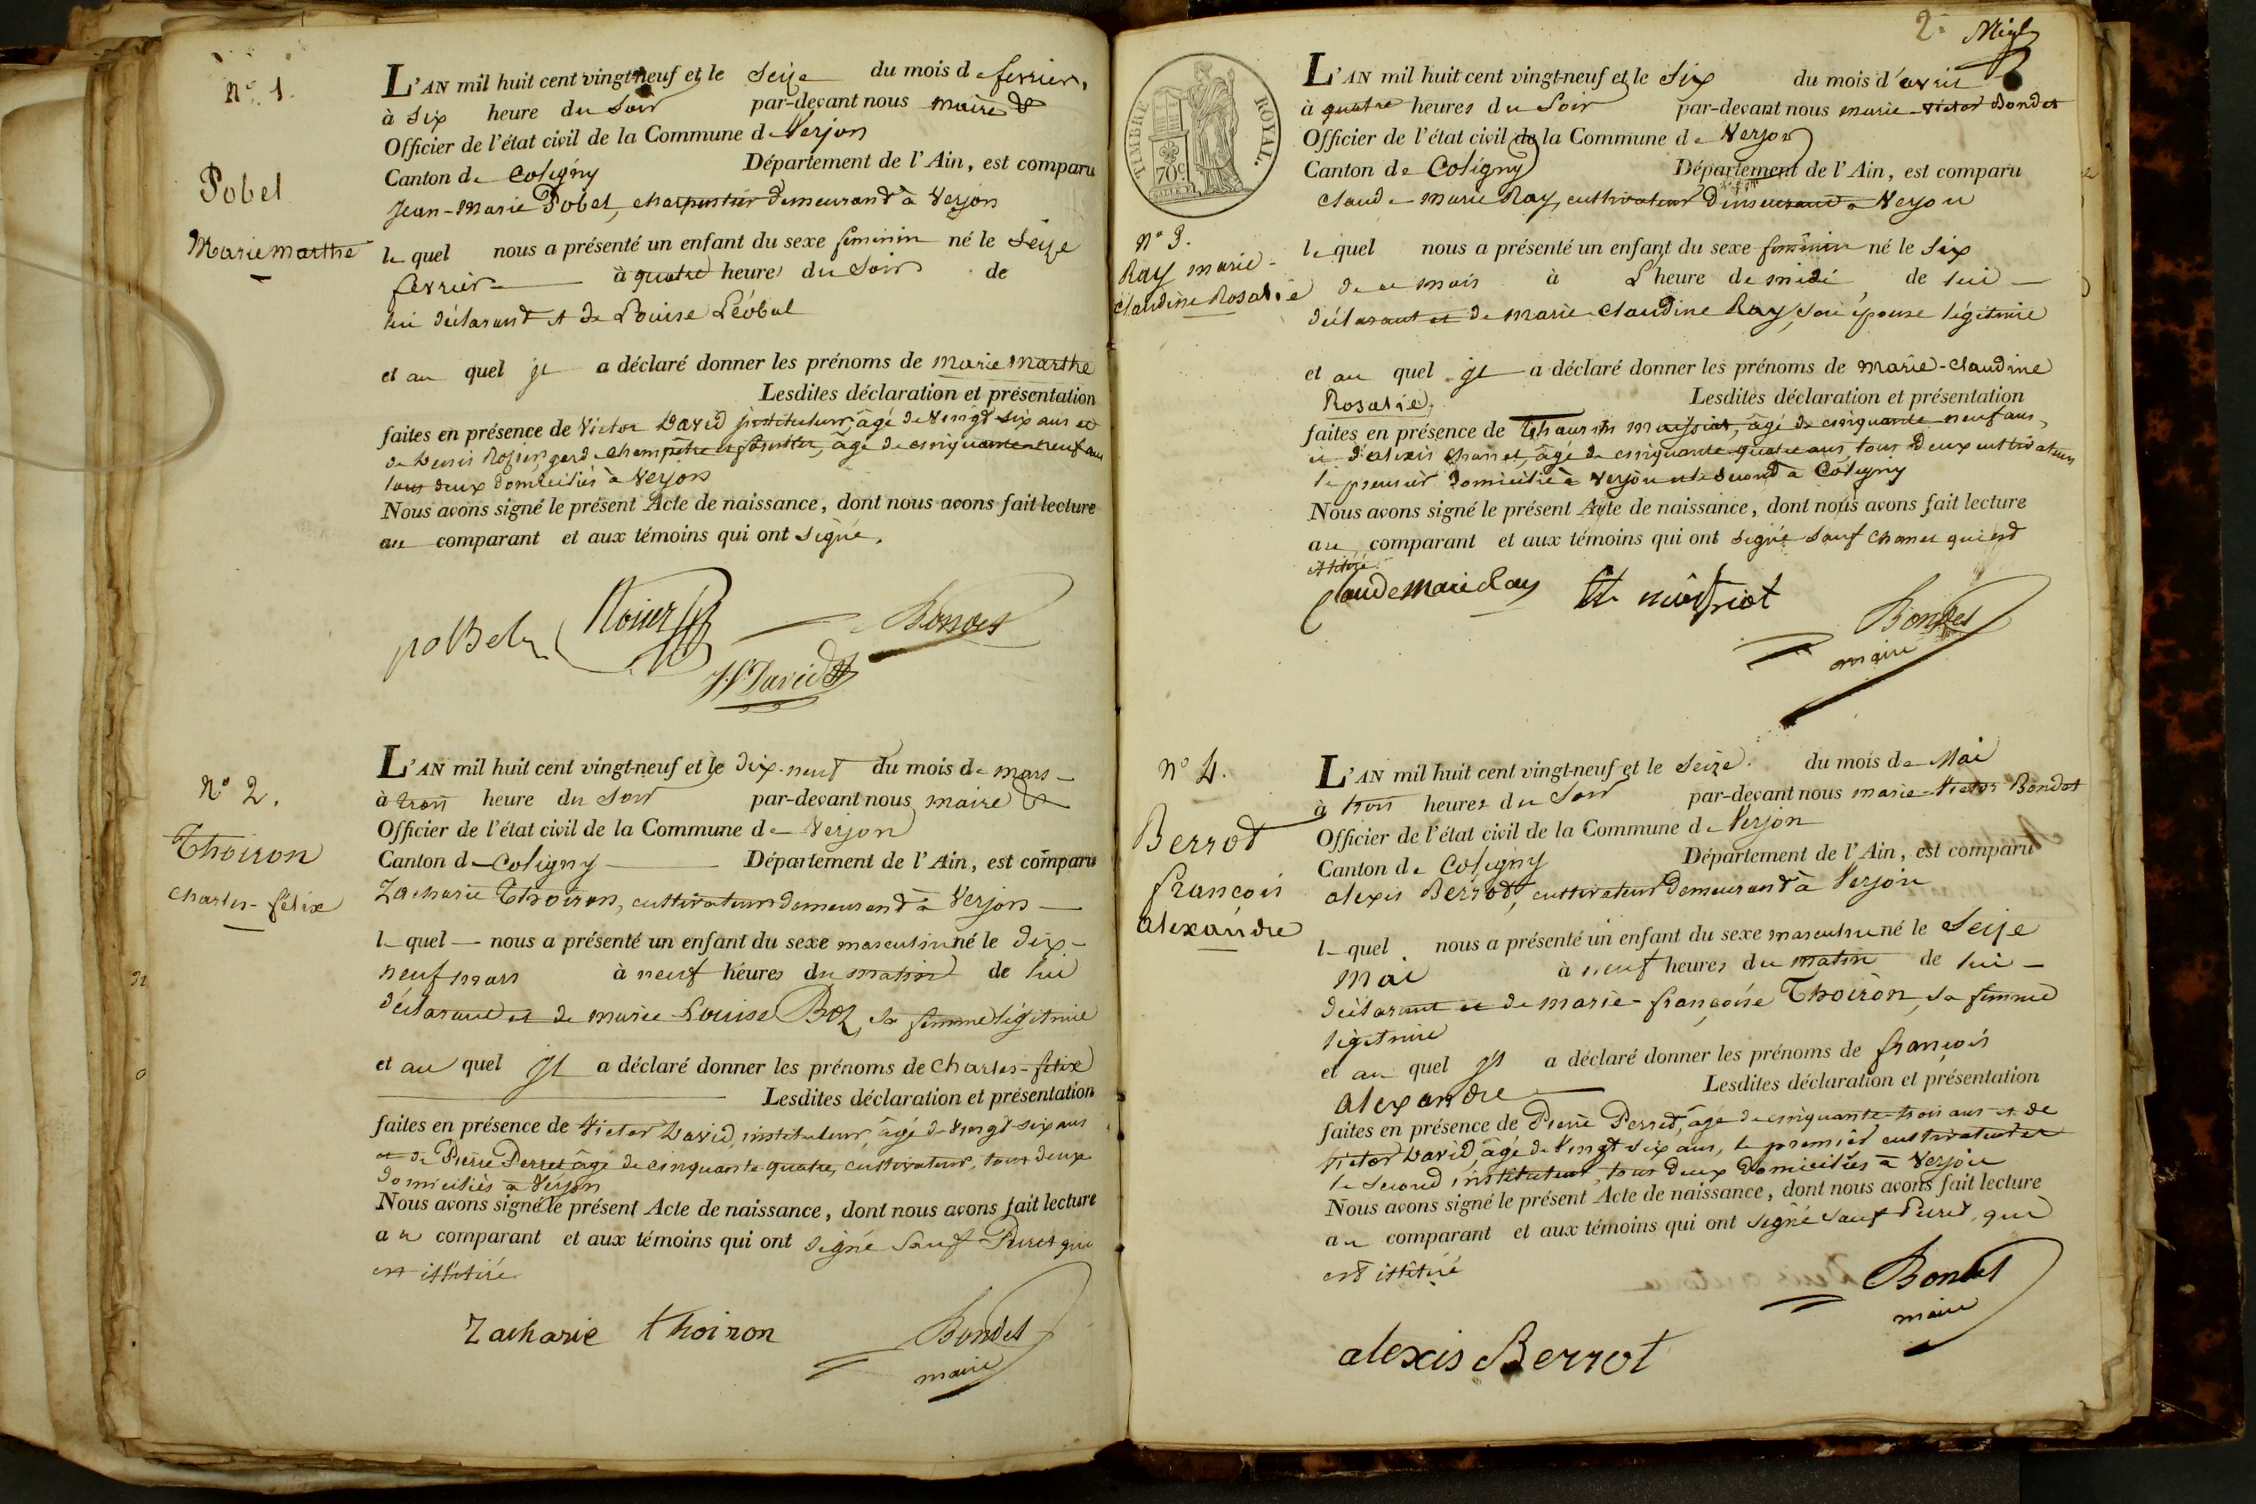 N° 1.
Pobel
Marie marthe
L'AN mil huit cent vingt-neuf et le Seize du mois de fevrier,
à six heure du Soir par-devant nous maire &
Officier de l'état civil de la Commune de Verjon
Canton de Coligny Département de l'Ain, est comparu
Jean-Marie Pobel, charpentier demeurant à Verjon
le quel nous a présenté un enfant du sexe feminin né le Seize
fevrier à quatre heures du Soir de
lui déclarant et de Louise Léobal
et au quel il a déclaré donner les prénoms de marie marthe
Lesdites déclaration et présentation
faites en présence de Victor David instituteur, âgé de Vingt-six ans et
de Denis garde champêtre et âgé de cinquante neuf ans
tous deux domiciliés à Verjon
Nous avons signé le présent Acte de naissance, dont nous avons fait lecture
au comparant et aux témoins qui ont signé.
poBel
Bondet
V. David
N° 2.
Thoiron
Charles-félix
L'AN mil huit cent vingt-neuf et le dix-neuf du mois de mars
à trois heure du Soir par-devant nous maire &
Officier de l'état civil de la Commune de Verjon
Canton de Coligny Département de l'Ain, est comparu
Zacharie Thoiron, cultivateur demeurant à Verjon
le quel nous a présenté un enfant du sexe masculin né le dix-
neuf mars à neuf heures du matin de lui
déclarant et de marie Louise Boz, sa femme légitime
et au quel il a déclaré donner les prénoms de Charles-félix
Lesdites déclaration et présentation
faites en présence de Victor David, instituteur, âgé de Vingt-six ans
et de Pierre Perret âgé de cinquante quatre, cultivateur, tous deux
domiciliés à Verjon
Nous avons signé le présent Acte de naissance, dont nous avons fait lecture
au comparant et aux témoins qui ont signé Sauf Perret qui
est illitéré
Zacharie thoiron
Bondet
maire
2.
TIMBRE ROYAL.
70c
N° 3.
Ray marie-
Claudine Rosalie
L'AN mil huit cent vingt-neuf et le Six du mois d'avril
à quatre heures du Soir par-devant nous marie-Victor Bondet
Officier de l'état civil de la Commune de Verjon
Canton de Coligny Département de l'Ain, est comparu
Claude-marie Ray, cultivateur demeurant à Verjon
le quel nous a présenté un enfant du sexe feminin né le Six
de ce mois à L'heure de midi, de lui
déclarant et de marie-Claudine Ray, son épouse légitime
et au quel il a déclaré donner les prénoms de marie-Claudine
Rosalie, Lesdites déclaration et présentation
faites en présence de âgé de cinquante neuf ans,
et d'alexis Chanet, âgé de cinquante quatre ans, tous deux cultivateurs
le premier domicilié à Verjon et le second à Coligny
Nous avons signé le présent Acte de naissance, dont nous avons fait lecture
au comparant et aux témoins qui ont signé Sauf Chanet qui est
illitéré
Claude marie Ray
Bondet
maire
N° 4.
Berrod
françois
alexandre
L'AN mil huit cent vingt-neuf et le Seize du mois de Mai
à trois heures du Soir par-devant nous marie-Victor Bondet
Officier de l'état civil de la Commune de Verjon
Canton de Coligny Département de l'Ain, est comparu
alexis Berrod, cultivateur demeurant à Verjon
le quel nous a présenté un enfant du sexe masculin né le Seize
Mai à neuf heures du matin de lui
déclarant et de marie-françoise Thoiron, sa femme
légitime
et au quel il a déclaré donner les prénoms de françois
alexandre Lesdites déclaration et présentation
faites en présence de Pierre Perret, âgé de cinquante-trois ans et de
Victor David, âgé de Vingt six ans, le premier cultivateur et
le second instituteur, tous deux domiciliés à Verjon
Nous avons signé le présent Acte de naissance, dont nous avons fait lecture
au comparant et aux témoins qui ont signé sauf Perret, qui
est illitéré
Bondet
maire
alexis Berrot